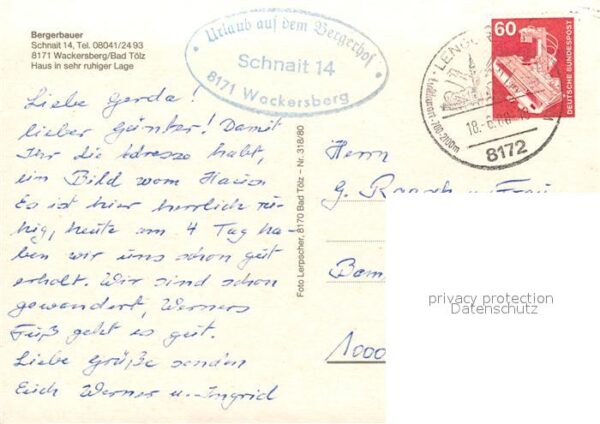 Bergerbauer
Schnait 14, Tel. 08041/24 93
8171 Wackersberg/Bad Tölz
Haus in sehr ruhiger Lage
Urlaub auf dem Bergerhof
Schnait 14
8171 Wackersberg
60
DEUTSCHE BUNDESPOST
8172
Liebe Gerda!
lieber Günter! Damit
Ihr die Adresse habt,
ein Bild vom Haus.
Es ist hier herrlich ru-
hig, heute am 4 Tag ha-
ben wir uns schon gut
erholt. Wir sind schon
gewandert, Werners
Fuß geht es gut.
Liebe Grüße senden
Euch Werner u. Ingrid
Foto Lerpscher, 8170 Bad Tölz – Nr. 318/80
Herrn
G. u. Frau
1000
privacy protection
Datenschutz